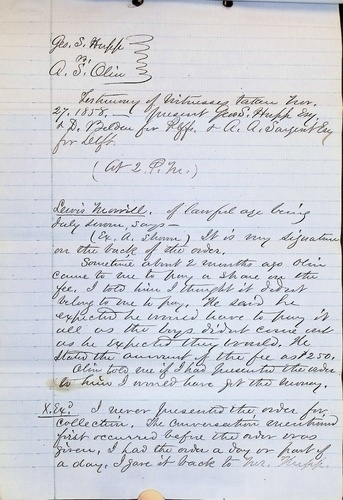 Geo. S. Hupp
vs.
A. S. Olin
Testimony of Witnesses taken Nov.
27. 1858. — present Geo S. Hupp Esq.
& D. Belden for Plffs. & A. A. Sargent Esq
for Deft.
(At 2 P.M.)
Lewis Morrill. of lawful age being
duly sworn, says —
(Ex. A. shown) It is my signature
on the back of the order.
Sometime about 2 months ago Olin
came to me to pay a share on the
fee. I told him I thought it didnt
belong to me to pay. He said he
expected he would have to pay it
all as the boys didnt come out
as he expected they would. He
stated the amount of the fee as $250.
Olin told me if I had presented the order
to him I would have got the money.
X.Exd. I never presented the order for
collection. The conversation mentioned
first occurred before the order was
given, I had the order a day or part of
a day. I gave it back to Mr. Hupp.